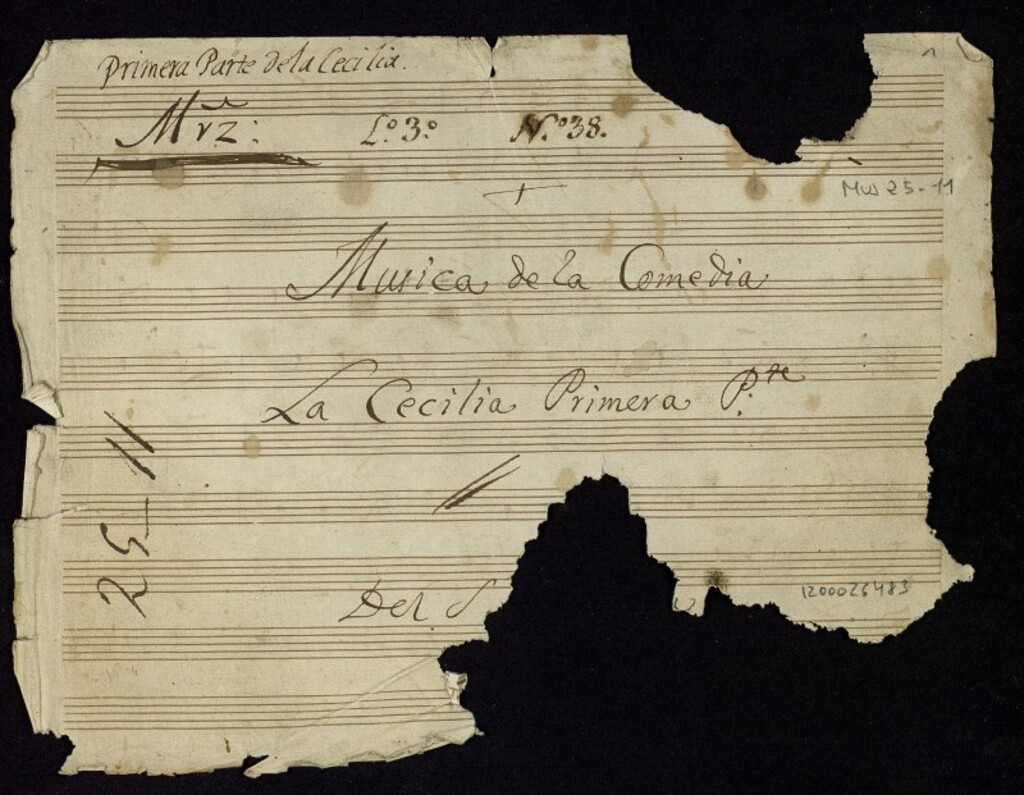 Primera Parte de la Cecilia.
Mrz: L.º 3.º N.º 38.
Mus 25-11
Musica de la Comedia
La Cecilia Primera P.te
25-11
Del S
1200026483